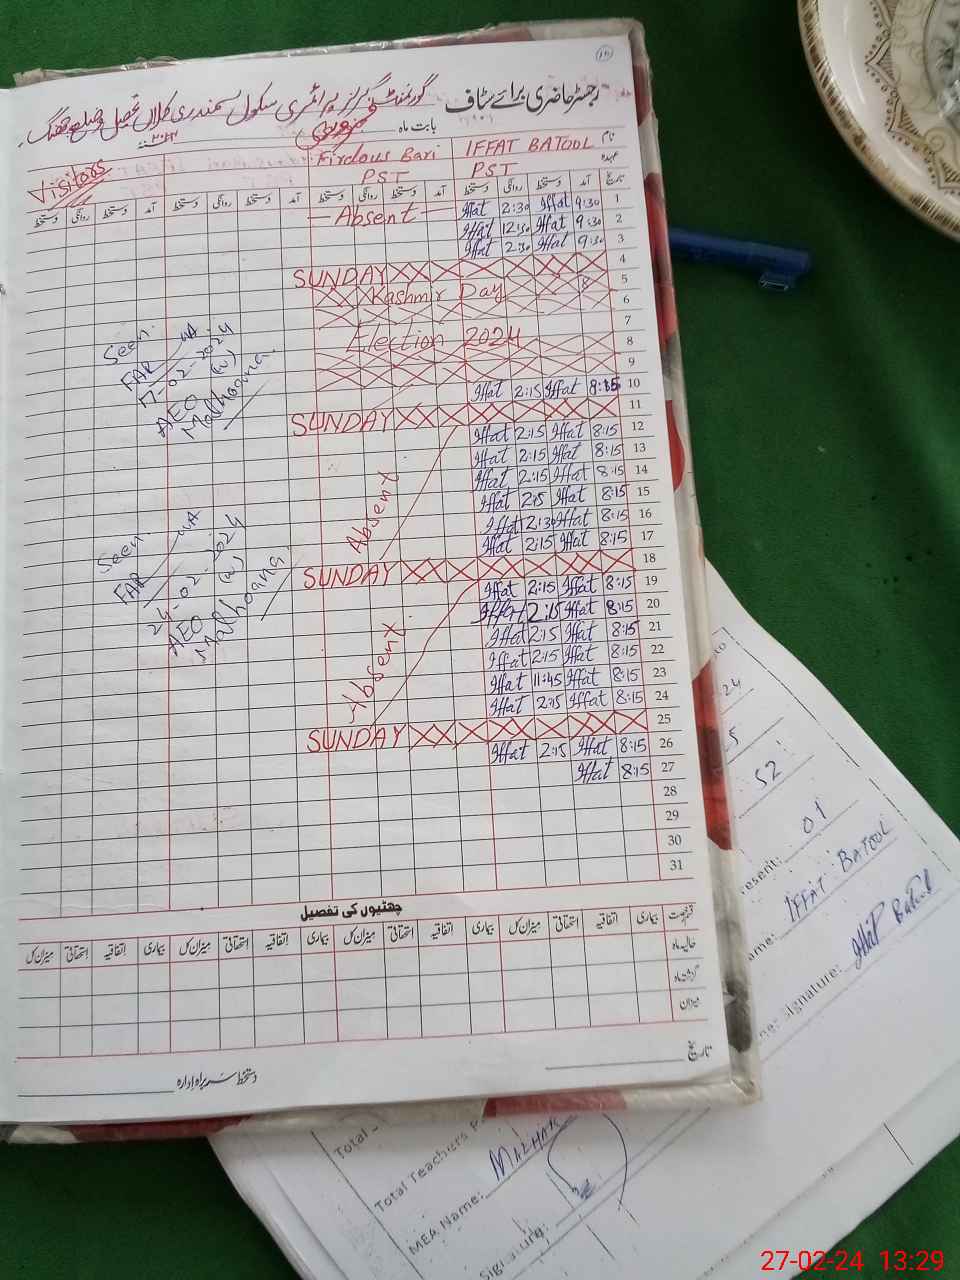 رجسٹر حاضری برائے سٹاف
گورنمنٹ گرلز پرائمری سکول سمندری کلاں تحصیل و ضلع جھنگ
بابت ماہ فروری
نام IFFAT BATOOL Firdous Bari Visitors
عہدہ PST PST
تاریخ آمد دستخط روانگی دستخط آمد دستخط روانگی دستخط آمد دستخط روانگی دستخط آمد دستخط روانگی دستخط
1 9:30 Iffat 2:30 Iffat — Absent —
2 9:30 Iffat 12:30 Iffat
3 9:30 Iffat 2:30 Iffat
4 SUNDAY
5 Kashmir Day
6
7
8 Election 2024
9
10 8:15 Iffat 2:15 Iffat
11 SUNDAY
12 8:15 Iffat 2:15 Iffat
13 8:15 Iffat 2:15 Iffat
14 8:15 Iffat 2:15 Iffat
15 8:15 Iffat 2:15 Iffat
16 8:15 Iffat 2:30 Iffat
17 8:15 Iffat 2:15 Iffat
Absent
18 SUNDAY
19 8:15 Iffat 2:15 Iffat
20 8:15 Iffat 2:15 Iffat
21 8:15 Iffat 2:15 Iffat
22 8:15 Iffat 2:15 Iffat
23 8:15 Iffat 11:45 Iffat
24 8:15 Iffat 2:15 Iffat
Absent
25 SUNDAY
26 8:15 Iffat 2:15 Iffat
27 8:15 Iffat
28
29
30
31
Seen
7-02-2024
AEO (w)
Malhoana
Seen
24-02-2024
AEO (w)
Malhoana
چھٹیوں کی تفصیل
قسم رخصت بیماری اتفاقیہ استحقاقی میزان کل بیماری اتفاقیہ استحقاقی میزان کل بیماری اتفاقیہ استحقاقی میزان کل بیماری اتفاقیہ استحقاقی میزان کل
حالیہ ماہ
گزشتہ ماہ
میزان
تاریخ
دستخط سربراہ ادارہ
52
resent: 01
ame: IFFAT BATOOL
Signature: Iffat Batool
Total
Total Teachers P
MEA Name:
Signature:
27-02-24 13:29